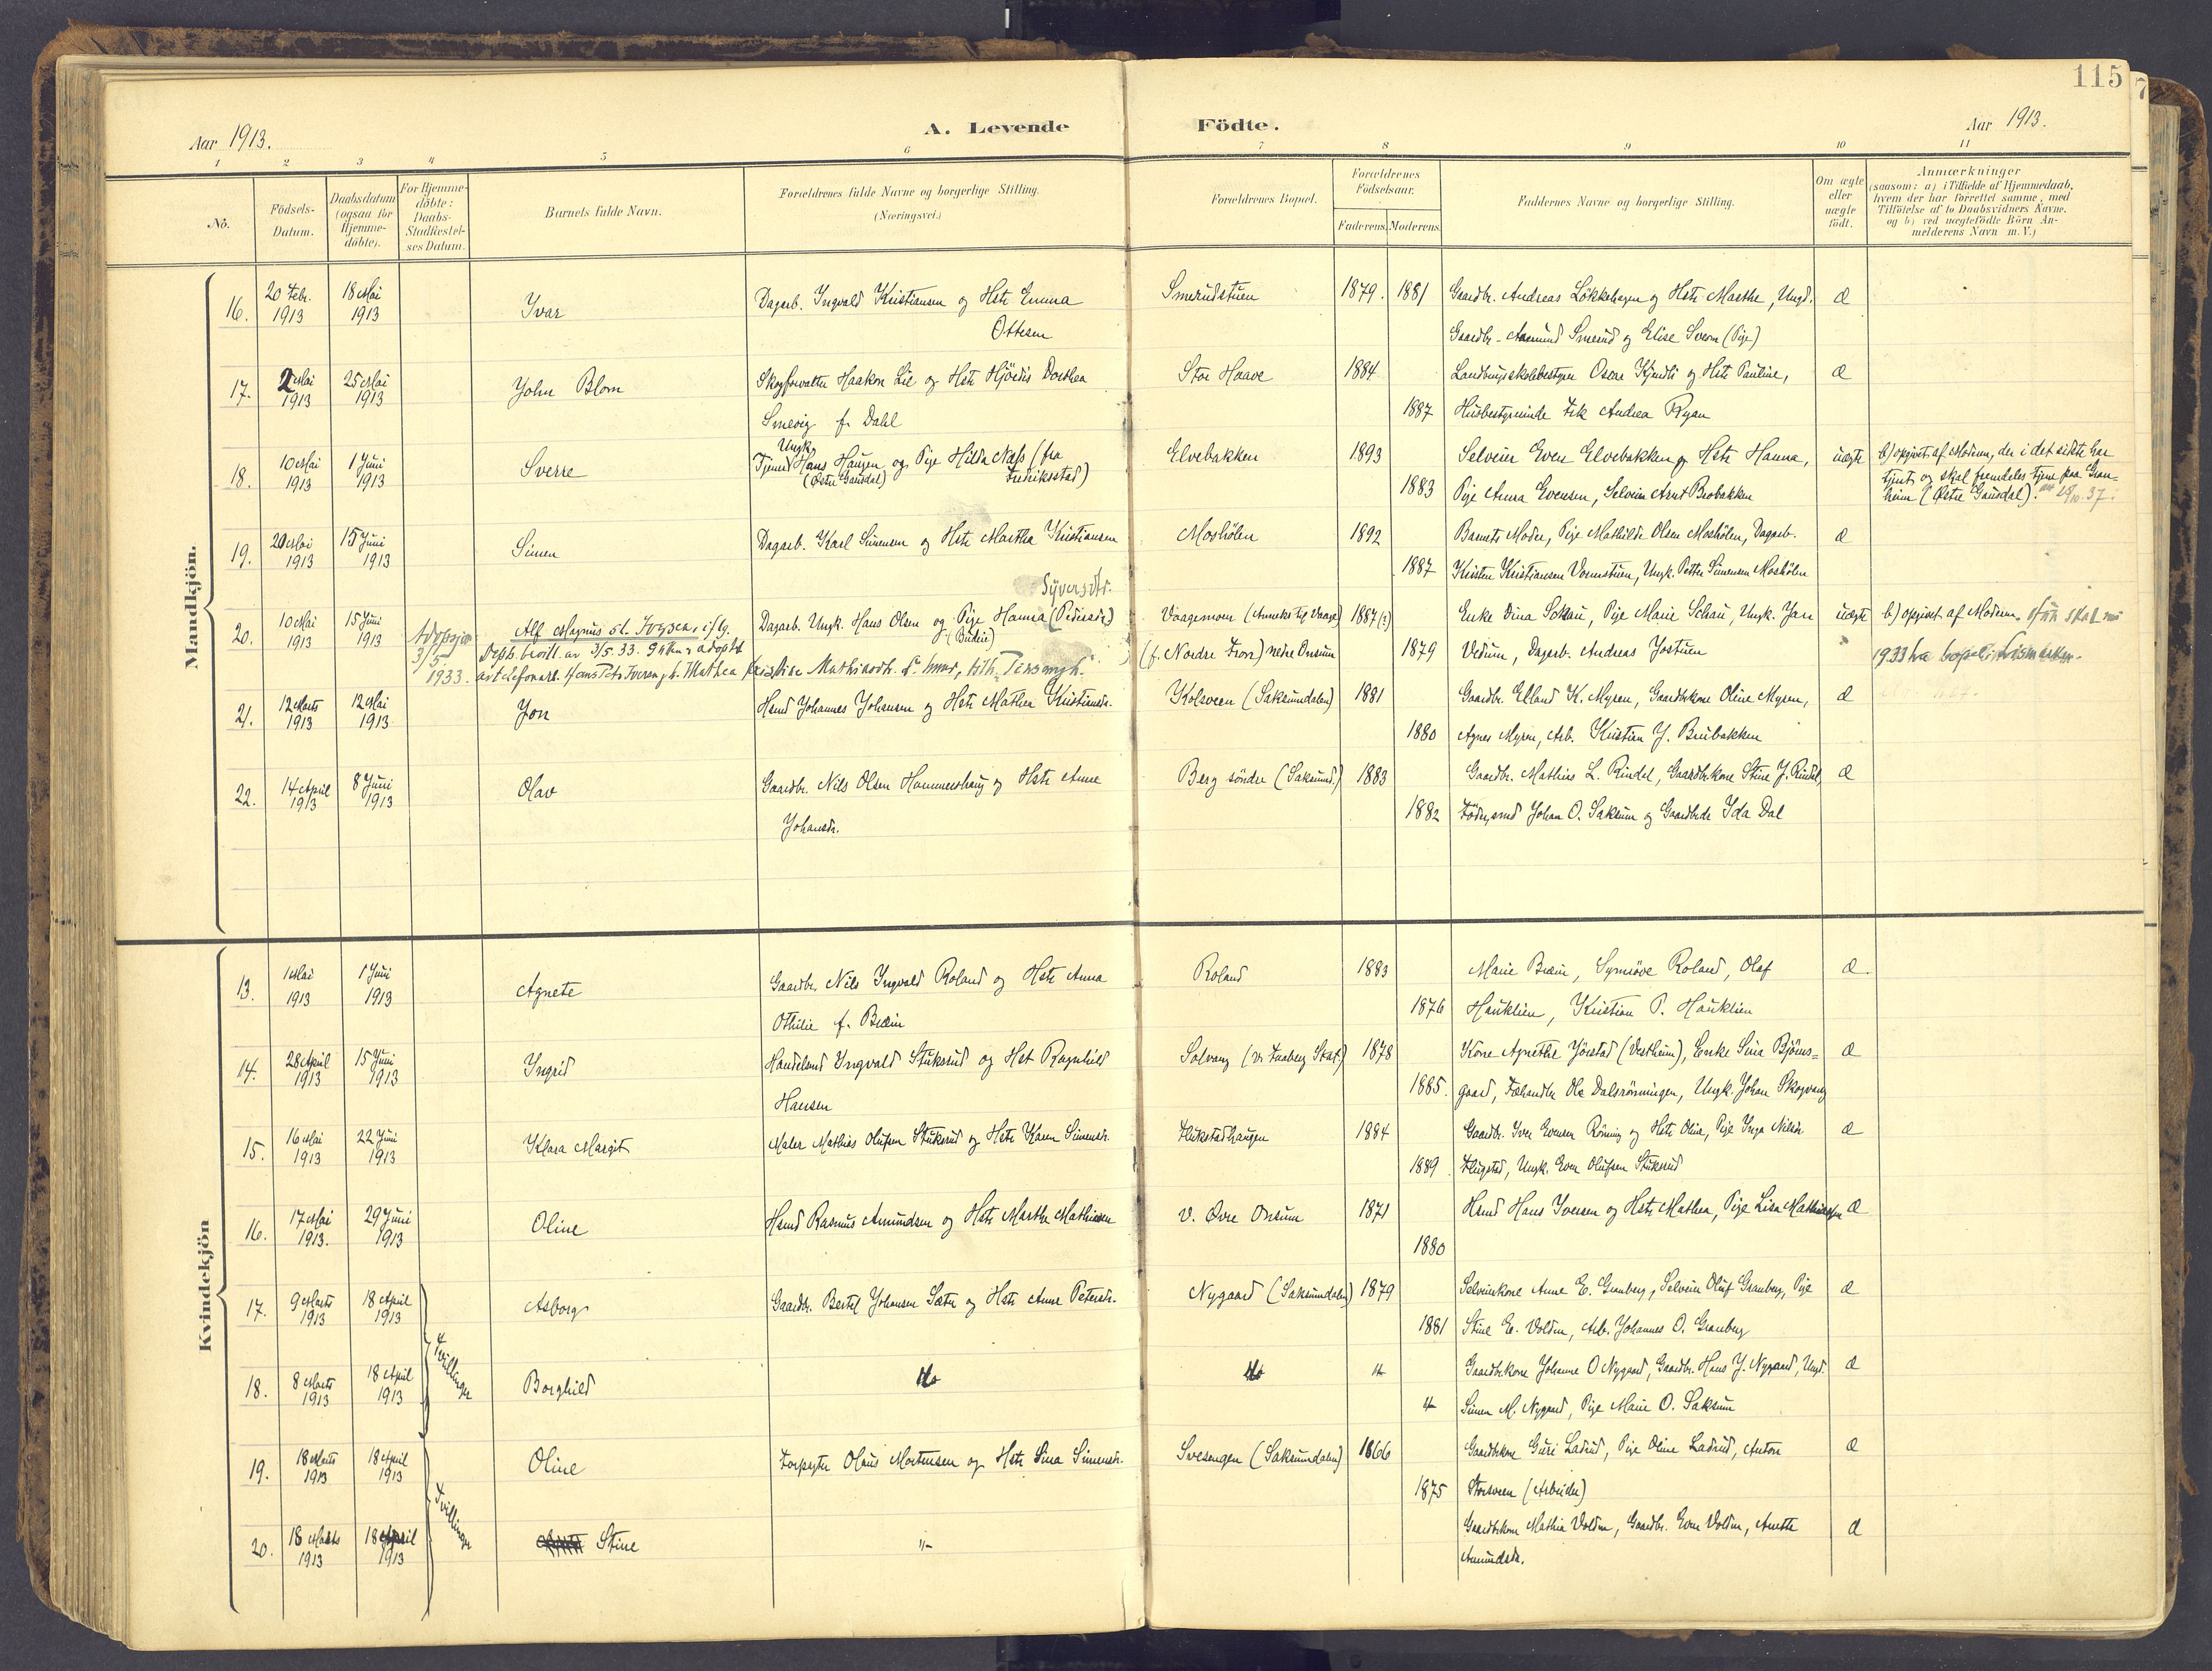 115
Aar 1913.
A. Levende Födte.
Aar 1913.
1 2 3 4 5 6 7 8 9 10 11
No.
Födsels-Datum.
Daabsdatum (ogsaa for Hjemme-döbte).
For Hjemme-döbte: Daabs-Stadfæstel-ses Datum.
Barnets fulde Navn.
Forældrenes fulde Navne og borgerlige Stilling. (Næringsvei.)
Forældrenes Bopæl.
Forældrenes Födselsaar.
Faderens. Moderens.
Faddernes Navne og borgerlige Stilling.
Om ægte eller uægte födt.
Anmærkninger
(saasom: a) i Tilfælde af Hjemmedaab,
hvem der har forrettet samme, med
Tilföielse af to Daabsvidners Navne.
og b) ved uægtefödte Börn An-
melderens Navn m. V.)
Mandkjön.
16. 20 Febr. 1913 18 Mai 1913 Ivar Dagarb. Ingvald Kristiansen og Hstr Emma Smerudstuen 1879. 1881 Gaardbr. Andreas Lökkehagen og Hstr Marthe, Ungd. Æ
Ottesen Gaardbr. Aamund Smerud og Elise (Pige)
17. 2 Mai 1913 25 Mai 1913 John Blom Skogforvalter Haakon Lie og Hstr Hjördis Dorthea Stor Haave 1884 Landbrugsskolebestyrer Oscar og Hstr Pauline, Æ
Smevig f. Dahl 1887 Husbestyrerinde Frk Andrea Ryan
18. 10 Mai 1913 1 Juni 1913 Sverre Ungk. Tjener Hans Haugen og Pige Hilda Næss (fra Elvebakken 1893 Selveier Even Elvebakken og Hstr Hanna, uægte b) opgivet af Moderen, der i det sidste har
(Östre Gausdal) Fredriksstad) 1883 Pige Anna Evensen, Selveier Arnt Brobakken tjent og skal fremdeles tjene paa Gran-
heim (Østre Gausdal).
19. 20 Mai 1913 15 Juni 1913 Simen Dagarb. Karl Simensen og Hstr Martha Kristiansen Moshölen 1892 Barnets Moder, Pige Mathilde Olsen Moshölen, Dagarb. Æ
1887 Kristen Kristiansen Vormstuen, Ungk. Petter Simensen Moshölen
Syversdtr.
20. 10 Mai 1913 15 Juni 1913 Adopsjon 3/5. 1933. Alf Magnus Dagarb. Ungk. Hans Olsen og Pige Hanna (Pedersdtr) Vaagemoen (Anneks til Vaage) 1887 (?) Enke Dina Schau, Pige Marie Schau, Ungk. Jan uægte b) opgivet af Moderen.
(Budeie) (f. Nordre Fron) nedre Onsum 1879 Vedum, Dagarb. Andreas Jostuen 1933
21. 12 Marts 1913 12 Mai 1913 Jon Hsmd Johannes Johansen og Hstr Mathea Kristiansdr. Kolsveen (Saksumdalen) 1881 Gaardbr. Elland K. Myren, Gaardbrkone Oline Myren, Æ
1880 Agnes Myren, Arb. Kristian J. Brubakken
22. 14 April 1913 8 Juni 1913 Olav Gaardbr. Nils Olsen Hammershaug og Hstr Anne Berg söndre (Saksumd.) 1883 Gaardbr. Mathias L. Rindal, Gaardbrkone Stine J. Rindal, Æ
Johansdr. 1882 Födrgsmd Johan O. Saksum og Gaardbrdr Ida Dal
Kvindekjön
13. 1 Mai 1913 1 Juni 1913 Agnete Gaardbr. Nils Ingvald Roland og Hstr Anna Roland 1883 Marie Bræin, Synnöve Roland, Olaf Æ.
Othilie f. Bræin 1876 Hauklien, Kristian P. Hauklien
14. 28 April 1913 15 Juni 1913 Ingrid Handelsmd Ingvald Stuksrud og Hst Ragnhild Solvang (v. Faaberg Stat.) 1878 Kone Agnethe Jörstad (Vestheim), Enke Sina Björns= Æ
Hansen 1885. gaard, Fæhandler Ole Dalsrönningen, Ungk. Johan Skogvang
15. 16 Mai 1913 22 Juni 1913 Klara Margit Maler Mathias Olufsen Stuksrud og Hstr Karen Simensdr. Flukstadhaugen 1884 Gaardbr. Iver Evensen Röning og Hstr Oline, Pige Inga Nilsdr. Æ
1889 Flugstad, Ungk. Even Olufsen Stuksrud
16. 17 Mai 1913. 29 Juni 1913 Oline Hsmd Rasmus Amundsen og Hstr Marthe Mathisen V. Øvre Onsum 1871 Hsmd Hans Iversen og Hstr Mathea, Pige Lisa Mathiassen Æ
1880
17. 9 Marts 1913 18 April 1913 Tvillinger Asborg Gaardbr. Bertel Johansen Sæter og Hstr Anne Petersdr. Nygaard (Saksumdalen) 1879 Selveierkone Anne E. Granberg, Selveier Oluf Granberg, Pige Æ
1881 Stine E. Volden, Arb. Johannes O. Granberg
18. 8 Marts 1913 18 April 1913 Borghild do do Gaardbrkone Johanne O Nygaard, Gaardbr. Hans J. Nygaard, Ungd. Æ
Simen M. Nygaard, Pige Marie O. Saksum
19. 18 Marts 1913 18 April 1913 Tvillinger Oline Forpagter Olaus Mortensen og Hstr Sina Simensdr. Svesengen (Saksumdalen) 1866 Gaardbrkone Guri Ladrud, Pige Oline Ladrud, Anton Æ
1875 Storsveen (Arbeider)
20. 18 Marts 1913 18 April 1913 Stine "- Gaardbrkone Mathia Volden, Gaardbr. Even Volden, Anette Æ
Amundsdr.